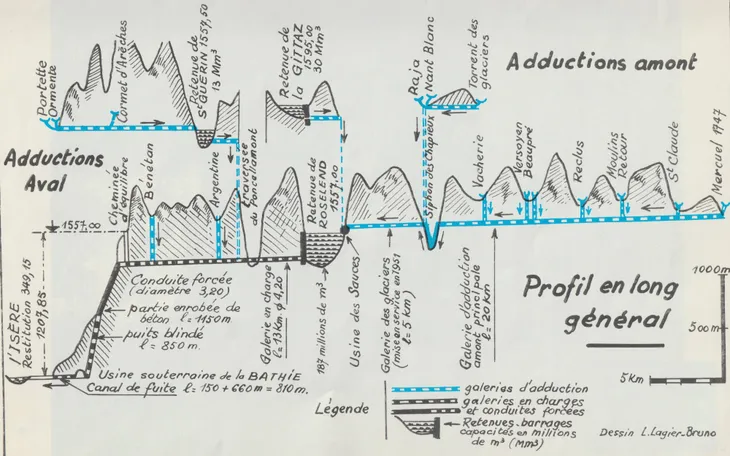 Adductions amont
Portette
Ormente
Cormet d'Arêches
Retenue de
St GUERIN 1557,50
13 Mm³
Retenue de
la GITTAZ
1595,00
30 Mm³
Raja
Nant Blanc
Torrent des
glaciers
Adductions
Aval
Cheminée
d'équilibre
Benetôn
Argentine
traversée
du Poncellamont
Retenue de
ROSELEND
1557.00
Siphon des Chapieux
Vacherie
Versoyen
Beaupré
Reclus
Moulins
Retour
St Claude
Mercuel 1947
1557,00
l'ISÈRE
Restitution 349,15
1207,85
Conduite forcée
(diamètre 3,20)
partie enrobée de
béton l=1150m
puits blindé
l=850m
Galerie en charge
l=13Km ø 4,20
187 millions de m³
Usine des Sauces
Galerie des glaciers
(mise en service en 1951
l=5 km)
Galerie d'adduction
amont principale
l=20Km
Profil en long
général
1000m
500m
5Km
Usine souterraine de la BATHIE
Canal de fuite l=150+660m=810m.
Légende
galeries d'adduction
galeries en charges
et conduites forcées
Retenues-barrages
capacités en millions
de m³ (Mm³)
Dessin L.Lagier-Bruno